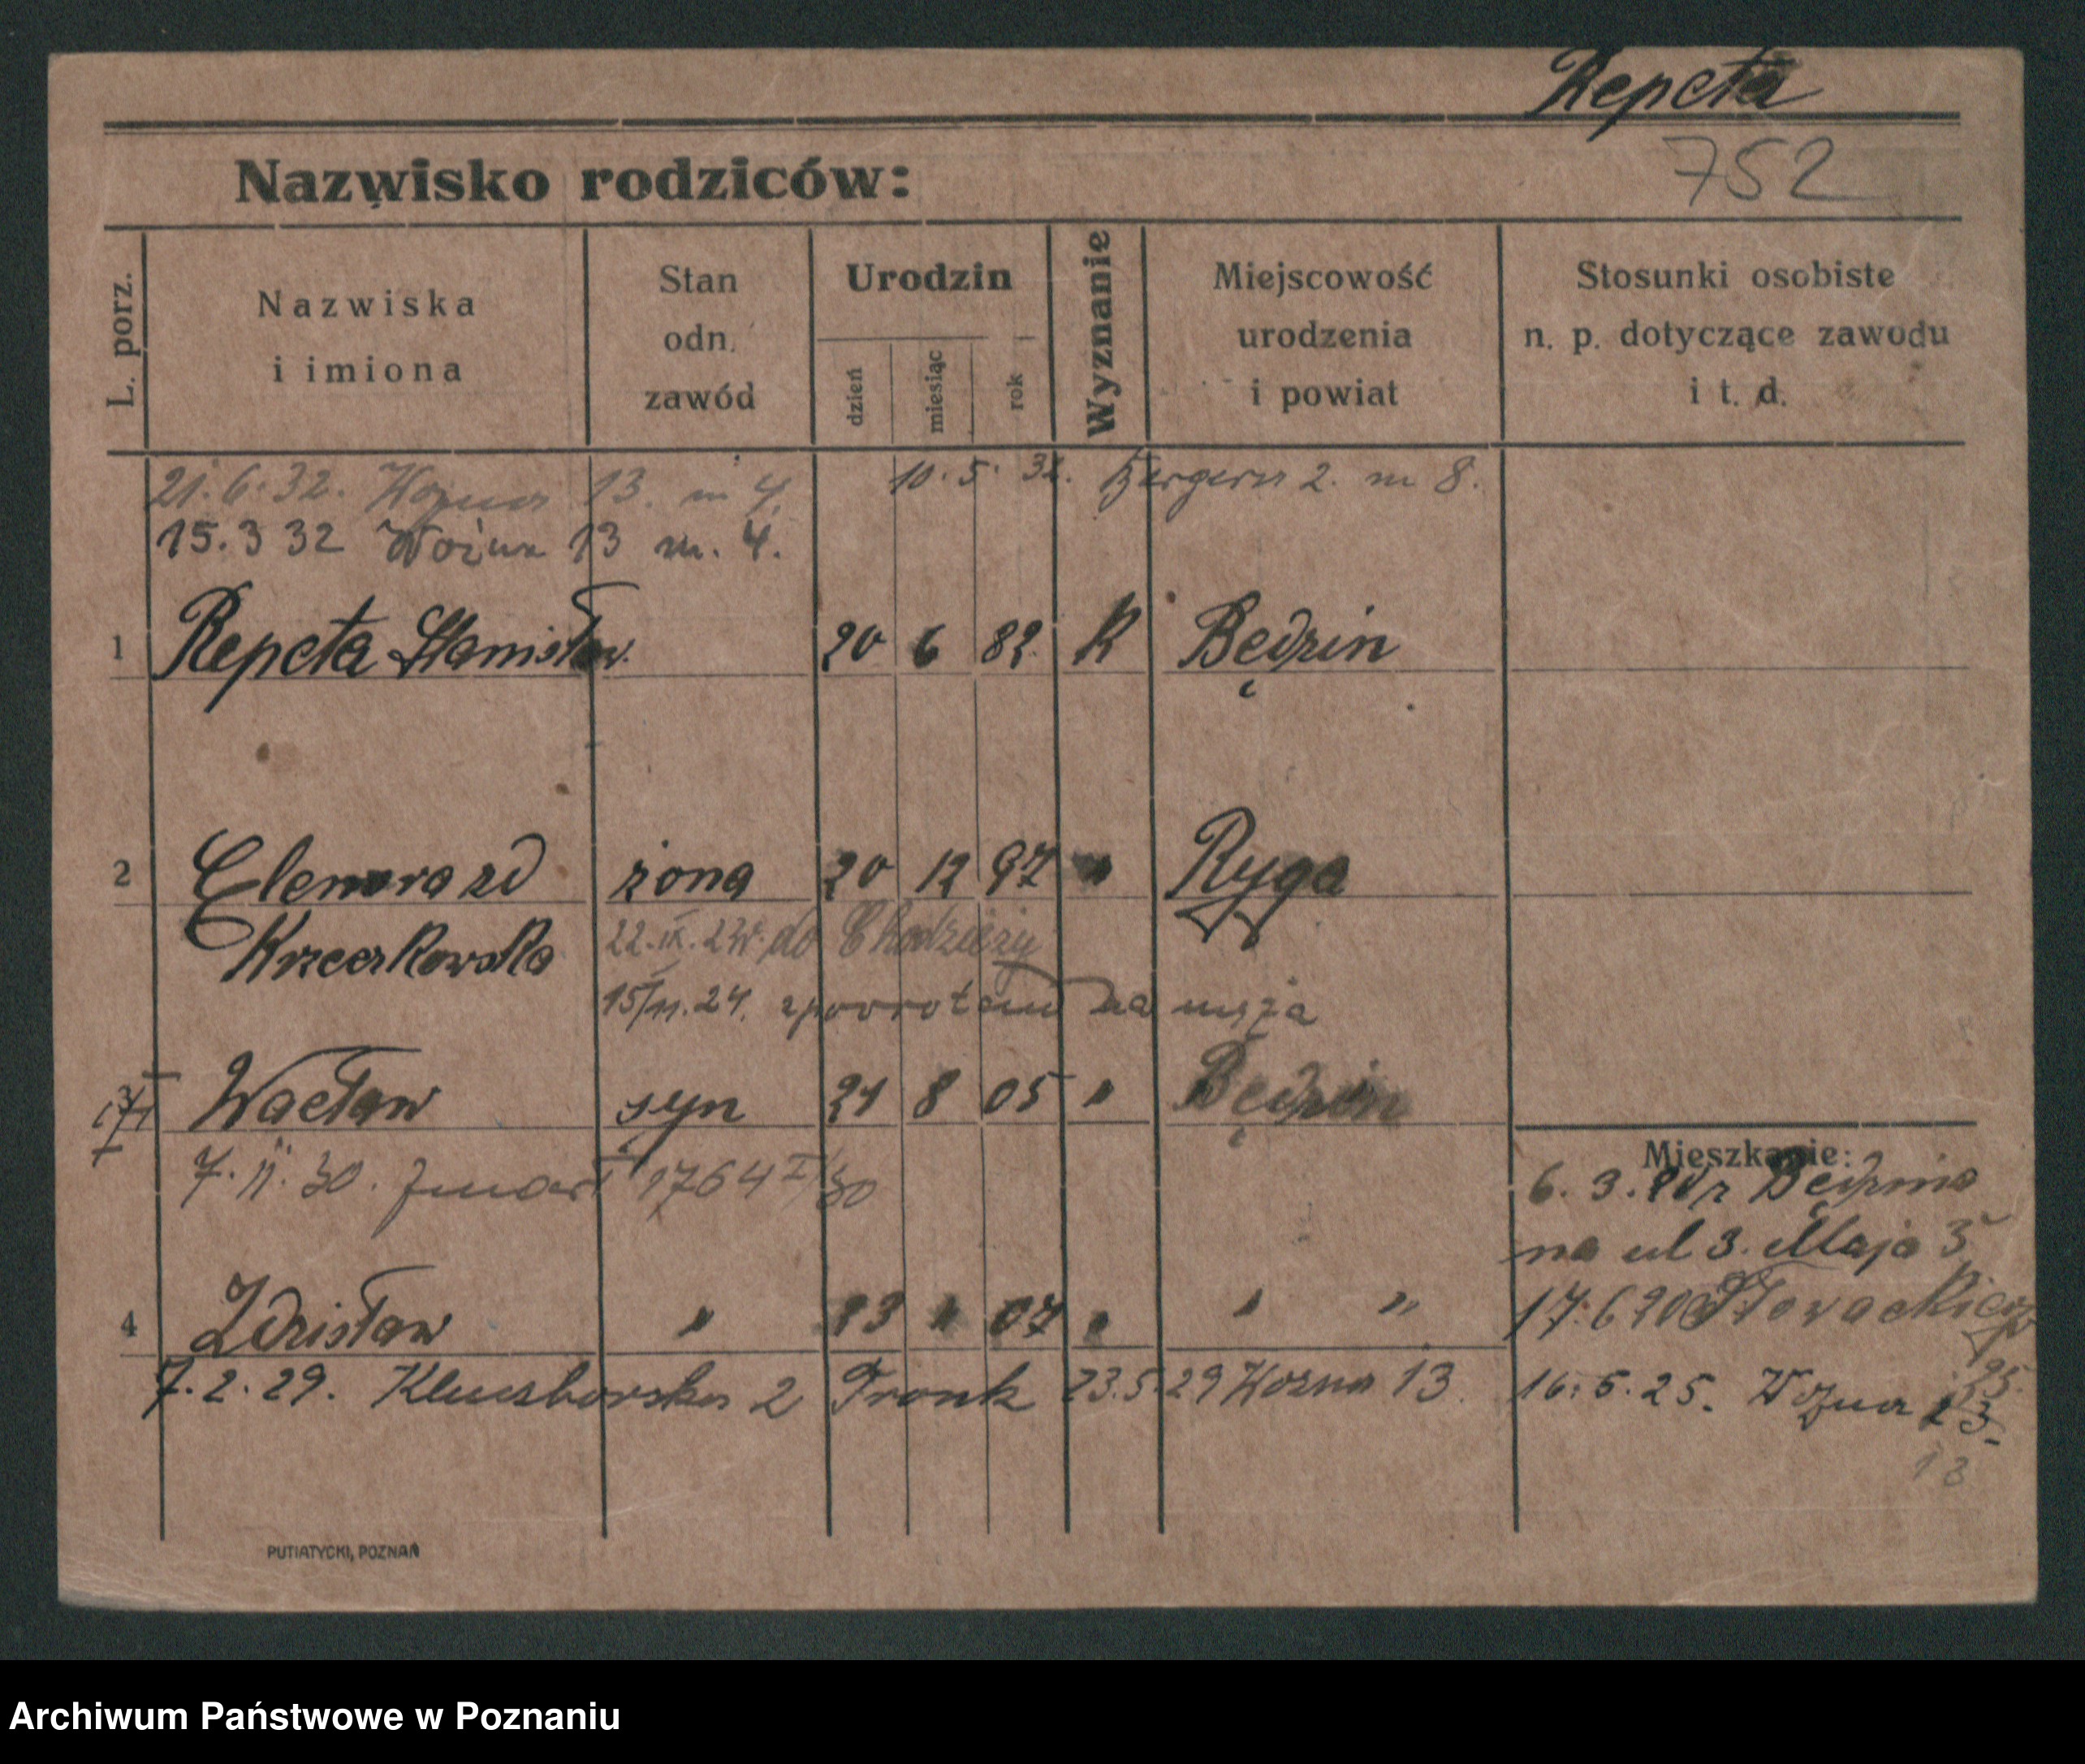 Repeta
752
Nazwisko rodziców:
L. porz.
Nazwiska
i imiona
Stan
odn.
zawód
Urodzin
dzień
miesiąc
rok
Wyznanie
Miejscowość
urodzenia
i powiat
Stosunki osobiste
n. p. dotyczące zawodu
i t. d.
21.6.32. Wozna 13. m 4. 10.5.32. Bergera 2. m 8.
15.3 32 Woźna 13 m. 4.
1 Repeta Stanisław. 20 6 82. R Będzin
2 Elenora zd żona 20 12 97 " Ryga
Krzeczkowska 22.IX.23r. do Chodzieży
15/11.24. zpowrotem na męża
3 Wacław syn 21 8 05 " Będzin
7.II.30. Zmarł 1764
4 Zdzisław " 23 " 07 " " "
7.2.29. Kluczborska 2 Fronk 23.5.29 Wozna 13.
Mieszkanie:
6.3. z Będzina
na ul 3. Maja 3
17.6 Słowackiego
25.
16.5.25. Wozna 13.
13
PUTIATYCKI, POZNAŃ
Archiwum Państwowe w Poznaniu